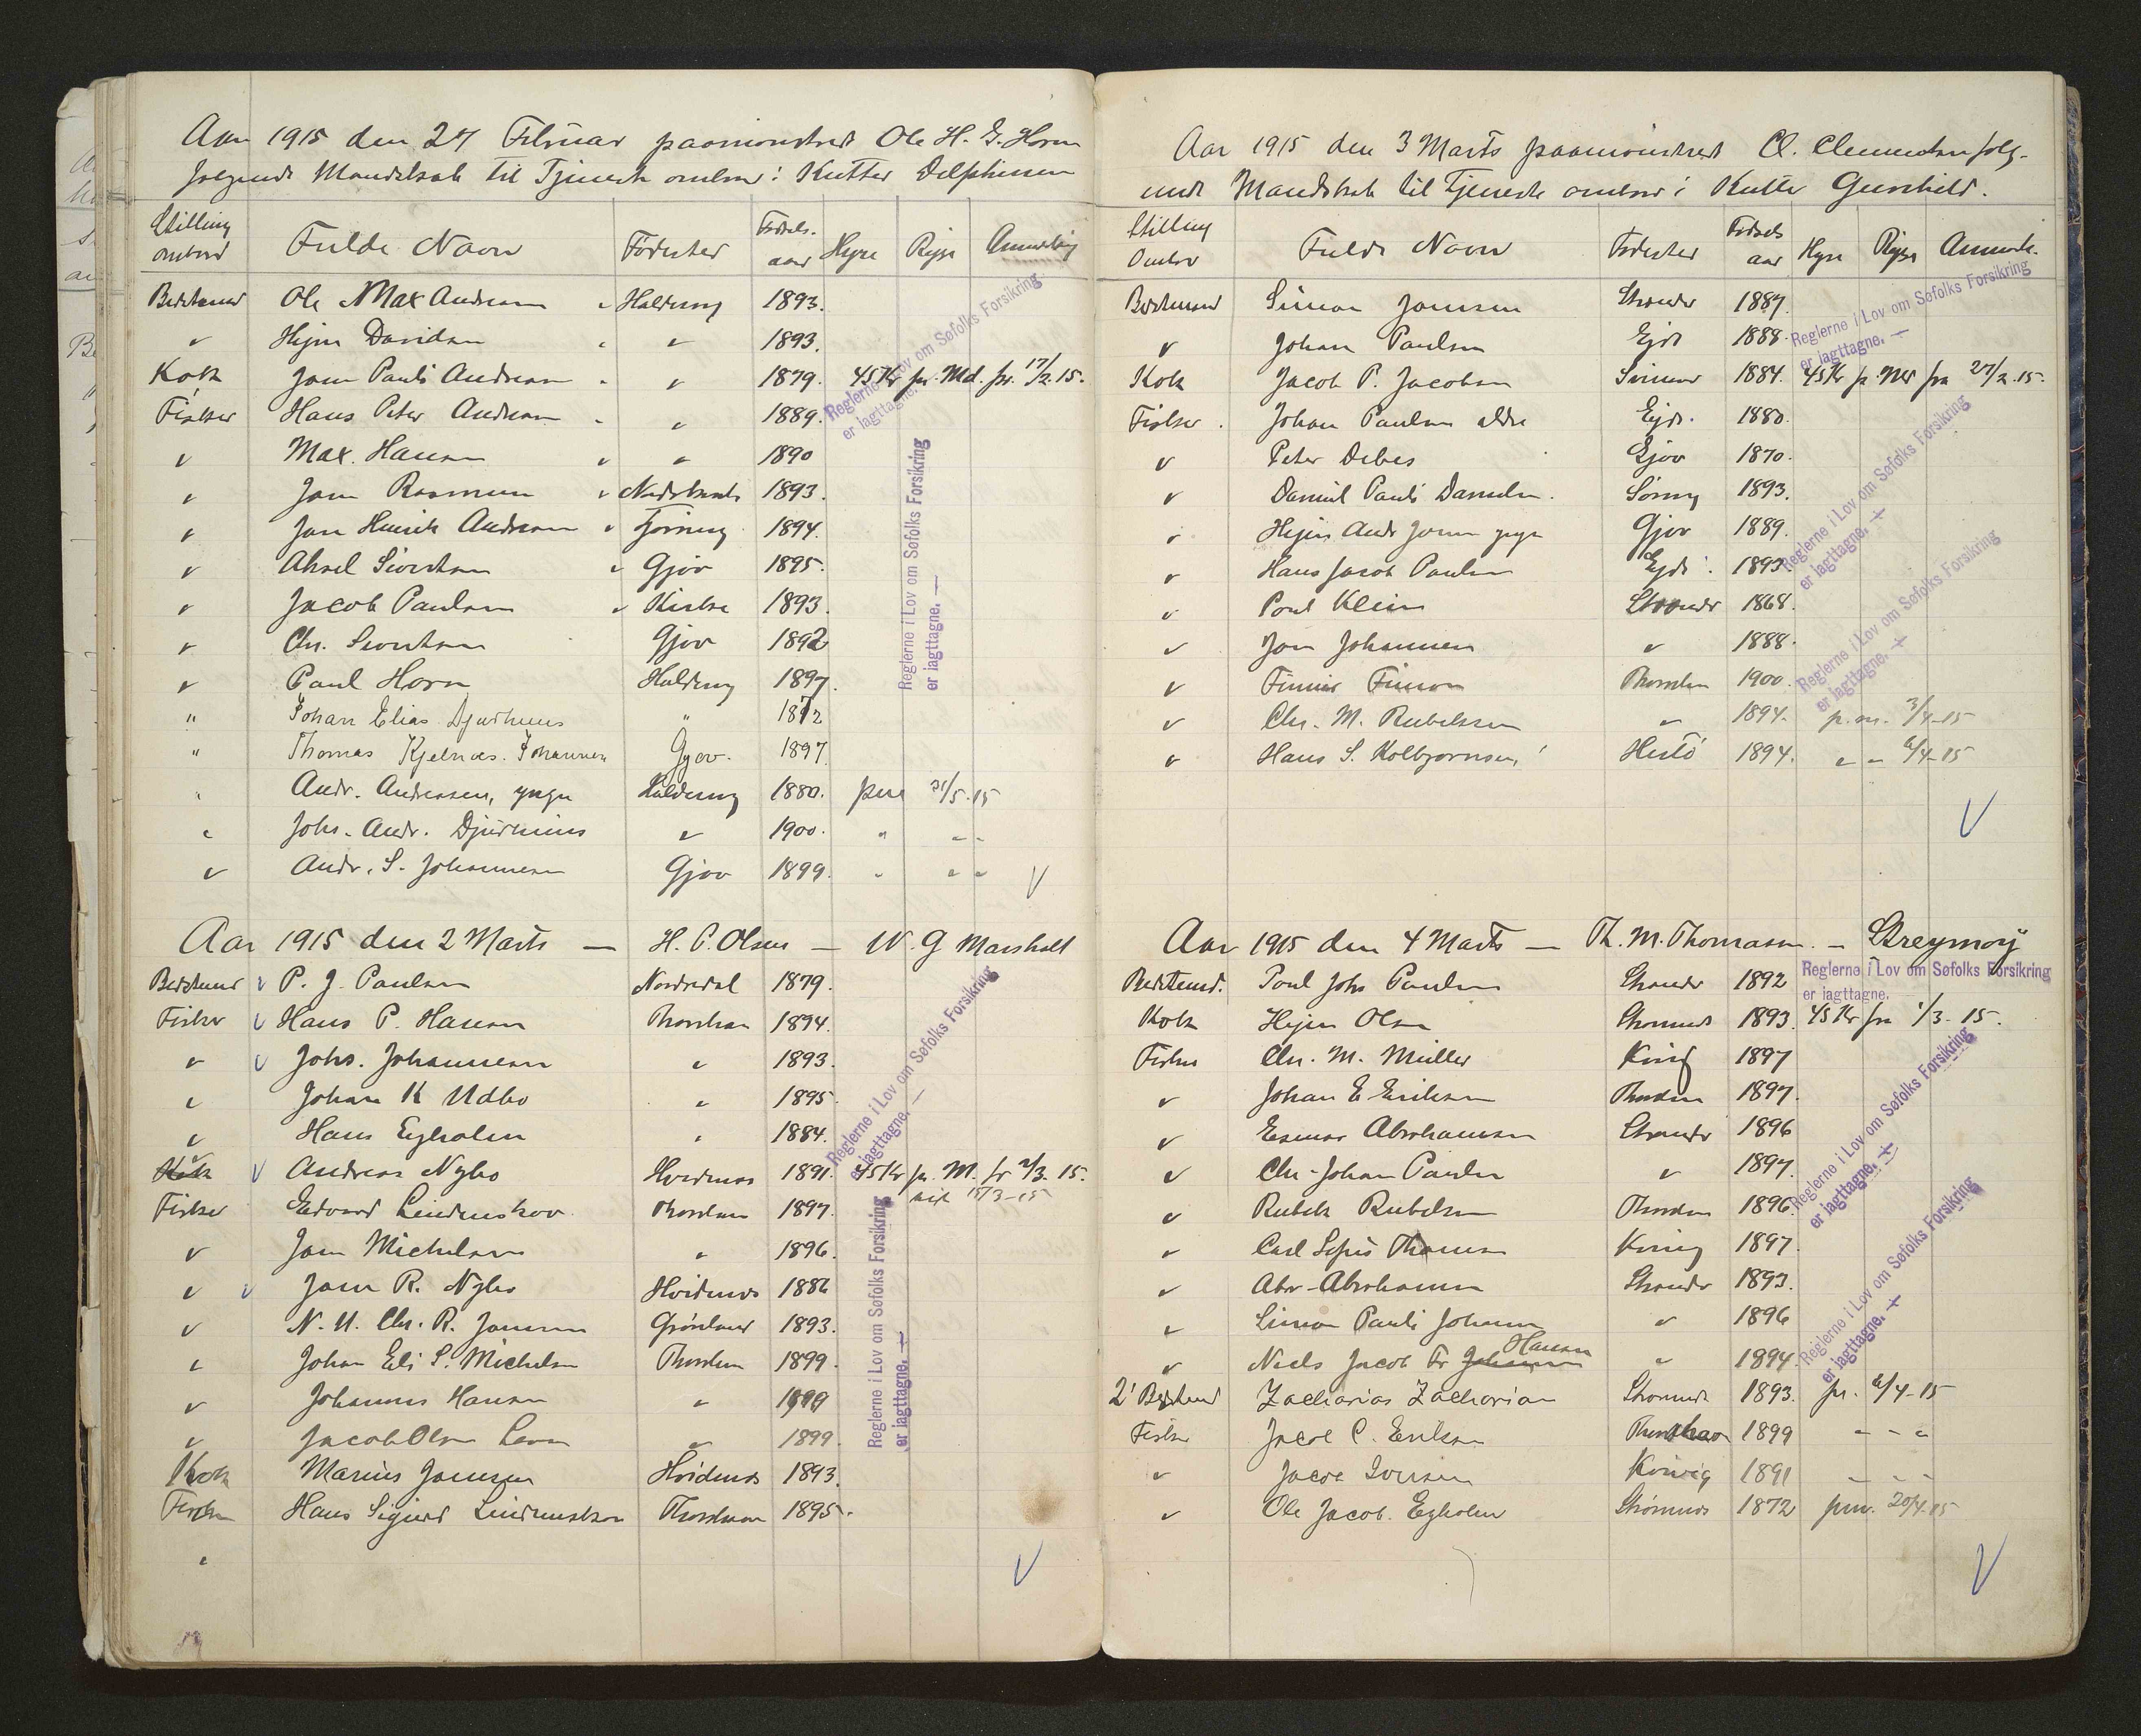 Aar 1915 den 27 Februar paamønstred Ole H. G. Horn
følgende Mandskab til Tjeneste ombord i Kutter Delphinen
Stilling ombord Fulde Navn Fødested Fødselsaar Hyre Rejse Anmærkning
Bedstemand Ole Max Andreasen " Haldersvig 1893.
" Hejne Davidsen " " 1893.
Kok Joen Pauli Andreasen " " 1879. 45 Kr pr. Md. fr. 17/2.15.
Fisker Hans Peter Andreasen " " 1889.
" Max. Hansen " " 1890
" Joen Rasmussen " 1893.
" Jon Henrik Andreasen " Tjørnevig 1894.
" Aksel Sivertsen " Gjov 1895.
" Jacob Paulsen " Kirkebø 1893.
" Chr. Sivertsen Gjov 1892
" Paul Horn Haldersvig 1897.
" Johan Elias Djurhuus " 1872
" Thomas Kjelnæs Johannesen Gjov. 1897.
" Andr. Andreasen, yngre Haldersvig 1880. pm 21/5.15
" Johs. Andr. Djurhuus " 1900. " " "
" Andr. S. Johannesen Gjov 1899. " " "
Reglerne i Lov om Søfolks Forsikring
er iagttagne. —
Reglerne i Lov om Søfolks Forsikring
er iagttagne. —
Aar 1915 den 2 Marts — H. P. Olsen — W. G Marshall
Bedstemand P. J. Paulsen Nordredal 1879.
Fisker Hans P. Hansen Thorshavn 1894.
" Johs. Johannesen " 1893.
" Johan K Udbo " 1895.
" Hans Egholm " 1884.
Kok Andreas Nybo Hvidenæs 1891. 45 Kr pr. M. fr 2/3. 15.
15/3-15
Fisker Edvard Lindenskov Thorshavn 1897.
" Joen Michelsen " 1896.
" Joen R. Nybo Hvidenæs 1886
" N. U. Chr. R. Joensen Grønland 1893.
" Johan Eli S. Michelsen Thorshavn 1899.
" Johannes Hansen " 1899
" Jacob Olsen " 1899.
Kok Marius Joensen Hvidenæs 1893.
Fisker Hans Sigurd Lindenskov Thorshavn 1895.
"
Reglerne i Lov om Søfolks Forsikring
er iagttagne. —
Reglerne i Lov om Søfolks Forsikring
er iagttagne. —
Aar 1915 den 3 Marts paamønstred Cl. Clementsen følg-
ende Mandskab til Tjeneste ombord i Kutter Gunhild.
Stilling Ombord Fulde Navn Fødested Fødselsaar Hyre Rejse Anmærk.
Bedstemand Simon Joensen Strender 1887.
" Johan Paulsen Ejde 1888.
Kok Jacob P. Jacobsen 1884. 45 Kr p. Md fra 27/2.15.
Fisker Johan Paulsen ældre Ejde. 1880.
" Peter Debes Gjov 1870.
" Daniel Pauli Danielsen. 1893.
" Hejne Andr Joensen yngre Gjov 1889.
" Hans Jacob Paulsen Ejde. 1893.
" Poul Klein Strender 1868.
" Jon Johannesen " 1888.
" Thorshavn 1900.
" Chr. M. Rubeksen " 1894. p.m. 3/4-15
" Hans S. Kolbjørnsen Hestø 1894. " " 6/4-15
Reglerne i Lov om Søfolks Forsikring
er iagttagne. —
Reglerne i Lov om Søfolks Forsikring
er iagttagne. +
Reglerne i Lov om Søfolks Forsikring
er iagttagne. +
Aar 1915 den 4 Marts — Th. M. Thomasen. — Streymoy
Bedstemd. Poul Johs Paulsen Strender 1892
Kok Hejne Olsen Strømnæs 1893. 45 Kr fra 1/3-15.
Fisker Chr. M. Müller Kvivig 1897
" Johan E Eriksen Thorshavn 1897.
" Esmar Abrahamsen Strender 1896
" Chr. Johan Paulsen " 1897.
" Rubek Rubeksen Thorshavn 1896.
" Carl Sofus Thomsen Kvivig 1897.
" Abr. Abrahamsen Strender 1893.
" Simon Pauli Johansen " 1896
" Niels Jacob Fr Johansen Hansen " 1894.
2' Bedstemd Zacharias Zachariasen Strømnæs 1893. pr. 6/4-15
Fisker Jacob C. Eriksen Thorshavn 1899 " " "
" Jacob Iversen Kvivig 1891 " " "
" Ole Jacob. Egholm Strømnæs 1872 pm. 20/4.15
Reglerne i Lov om Søfolks Forsikring
er iagttagne.
Reglerne i Lov om Søfolks Forsikring
er iagttagne. +
Reglerne i Lov om Søfolks Forsikring
er iagttagne. +